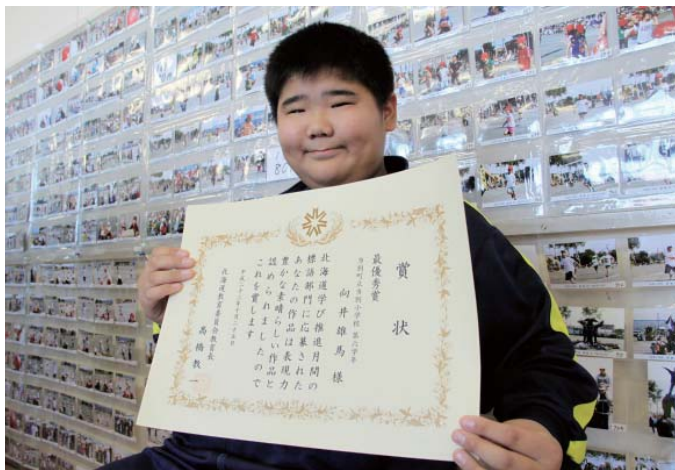 賞状
最優秀賞
当別町立当別小学校 第六学年
向井雄馬 様
北海道学び推進月間の
標語部門に応募された
あなたの作品は表現力
豊かな素晴らしい作品と
認められましたので
これを賞します
平成二十三年十月二十五日
北海道教育委員会教育長
高橋教一